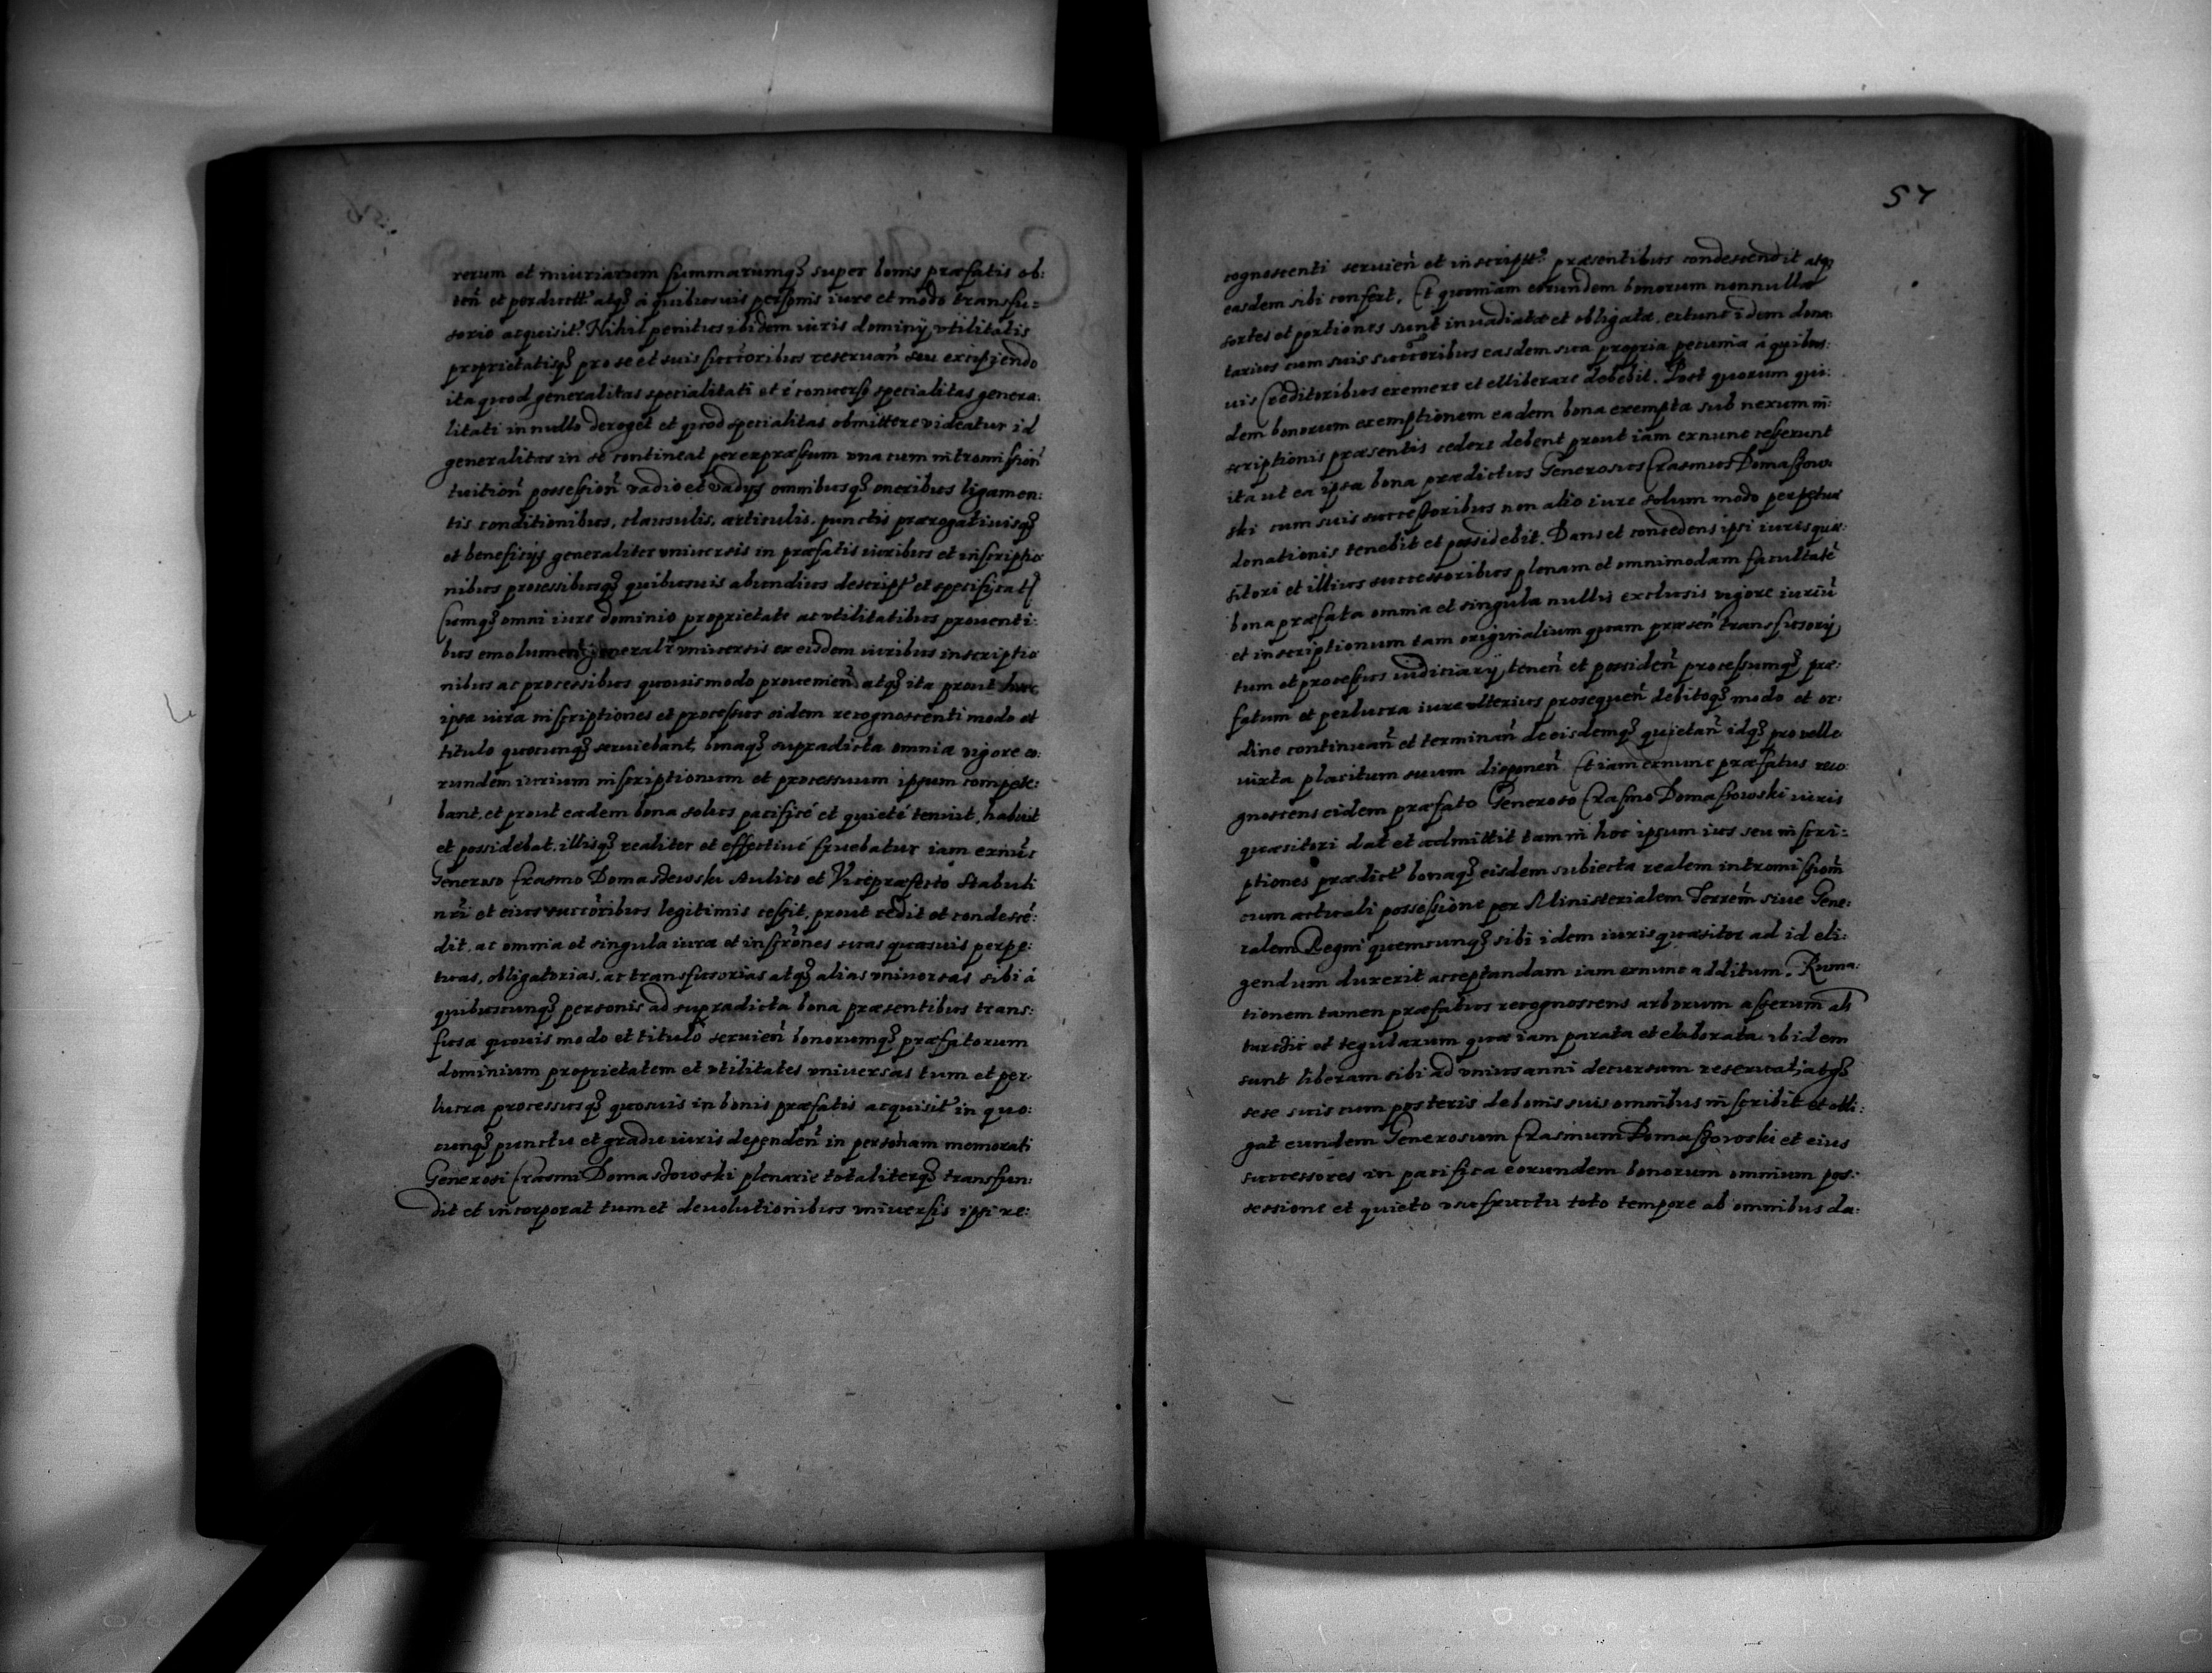 rerum et iniuriarum summarumq́ super bonis præfatis ob:
ten̄ et perductt̄ atq́ á quibusuis personis iure et modo transfu:
sorio acquisit̄. Nihil penitus ibidem iuris dominÿ vtilitatis
proprietatisq́ pro se et suis succ̄oribus reseruan̄ seu excipiendo
ita quod generalitas specialitati et é conuerso specialitas genera:
litati in nullo deroget et quod specialitas obmittere videatur id
generalitas in se contineat per expræssum vna cum intromission̄
tuition̄ possession̄ vadio et vadÿs omnibusq́ oneribus ligamen:
tis conditionibus, clausulis, articulis, punctis prærogatiuisq́
et beneficÿs generaliter vniuersis in præfatis iuribus et inscriptio
nibus processibusq́ quibusuis abundius descript̄ et specificat̄
Cumq́ omni iure dominio proprietate ac vtilitatibus prouenti:
bus emolument̄ general̄r vniuersis ex eisdem iuribus inscriptio
nibus ac processibus quouis modo prouenien̄ atq́ ita prout hæc
ipsa iura inscriptiones et processus eidem recognoscenti modo et
titulo quocunq́ seruiebant, bonaq́ supradicta omnia vigore eo:
rundem iurium inscriptionum et processuum ipsum compete:
bant, et prout eadem bona solus pacificé et quieté tenuit, habuit
et possidebat, illisq́ realiter et effectiué fruebatur iam exnūc
Generoso Erasmo Domaszewski Aulico et Vicepræfecto Stabuli
nr̄i et eius succ̄oribus legitimis cessit, prout cedit et condescē:
dit, ac omnia et singula iura et inscr̄ones suas quasuis perpe:
tuas, obligatorias, ac transfusorias atq́ alias vniuersas sibi á
quibuscunq́ personis ad supradicta bona præsentibus trans:
fusa quouis modo et titulo seruien̄ bonorumq́ præfatorum
dominium proprietatem et vtilitates vniuersas tum et per:
lucra processusq́ quosuis in bonis præfatis acquisit̄ in quo:
cunq́ punctu et gradu iuris dependen̄ in personam memorati
Generosi Erasmi Domaszowski plenarie totaliterq́ transfun:
dit et incorporat tum et deuolutionibus vniuersis ipsi re:
57
cognoscenti seruien̄ et inscript̄. præsentibus condescendit atq́
easdem sibi confert. Et quoniam eorundem bonorum nonnullæ
sortes et portiones sunt inuadiatæ et obligatæ, extunc idem dona
tarius cum suis succ̄oribus easdem sua propria pecunia á quibus:
uis Creditoribus eximere et elliberare debebit. Post quorum qui:
dem bonorum exemptionem eadem bona exempta sub nexum in:
scriptionis præsentis cedere debent prout iam exnunc cesserunt
ita ut ea ipsa bona prædictus Generosus Erasmus Domaszow:
ski cum suis successoribus non alio iure solum modo perpetuæ
donationis tenebit et possidebit. Dans et concedens ipsi iuris quæ:
sitori et illius successoribus plenam et omnimodam facultatē
bona præfata omnia et singula nullis exclusis vigore iuriū
et inscriptionum tam originalium quam præsen̄ transfusorÿ
tum et processus iudiciarÿ, tenen̄ et possiden̄ processumq́ præ:
fatum et perlucra iure vlterius prosequen̄ debitoq́ modo et or:
dine continuan̄ et terminan̄ de eisdemq́ quietan̄ idq́ pro velle
iuxta placitum suum disponen̄ Et iam exnunc præfatus reco
gnoscens eidem præfato Generoso Erasmo Domaszowski iuris
quæsitori dat et admittit tam in hoc ipsum ius seu inscri:
ptiones prædict̄ bonaq́ eisdem subiecta realem intromission̄
cum actuali possessione per Ministerialem Terren̄ siue Gene:
ralem Regni quemcunq́ sibi idem iuris quæsitor ad id eli:
gendum duxerit acceptandam iam exnunc additum. Ruma:
tionem tamen præfatus recognoscens arborum asserum als
tarcic et tegularum quæ iam parata et elaborata ibidem
sunt liberam sibi ad vnius anni decursum reseruat, atq́
sese suis cum posteris de bonis suis omnibus inscribit et obli:
gat eundem Generosum Erasmum Domaszowski et eius
successores in pacifica eorundem bonorum omnium pos:
sessione et quieto vsufructu toto tempore ab omnibus da: